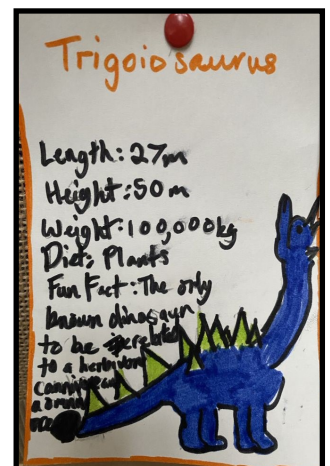 Trigoiosaurus
Length: 27m
Height: 50m
Weight: 100,000kg
Diet: Plants
Fun Fact: The only
known dinosaur
to be related
to a herbivore
carnivore